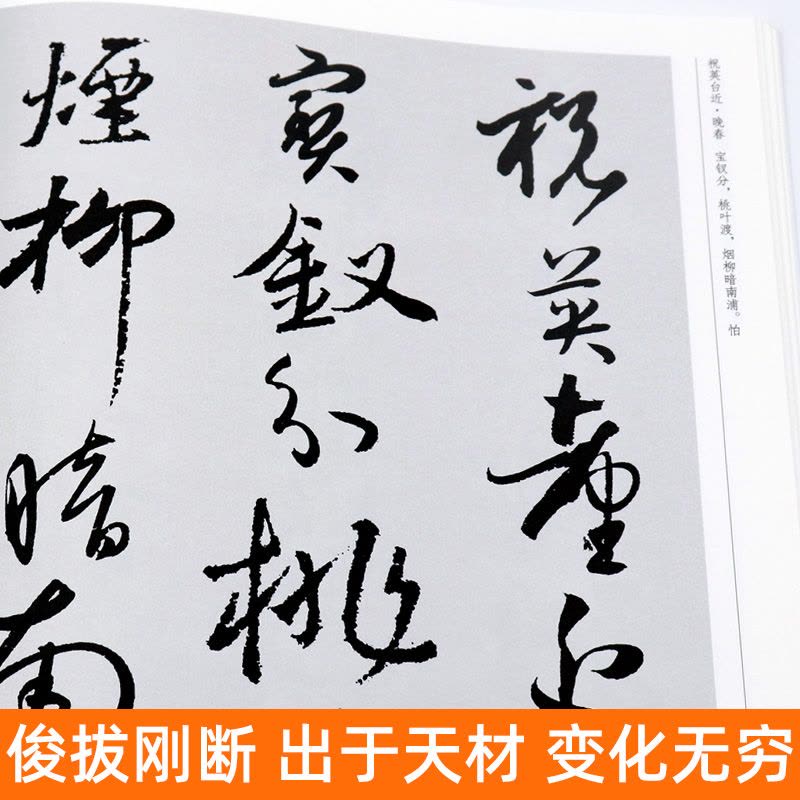 祝英台近·晚春 宝钗分，桃叶渡，烟柳暗南浦。怕
祝英臺近
寶釵分桃
煙柳暗南
俊拔刚断 出于天材 变化无穷